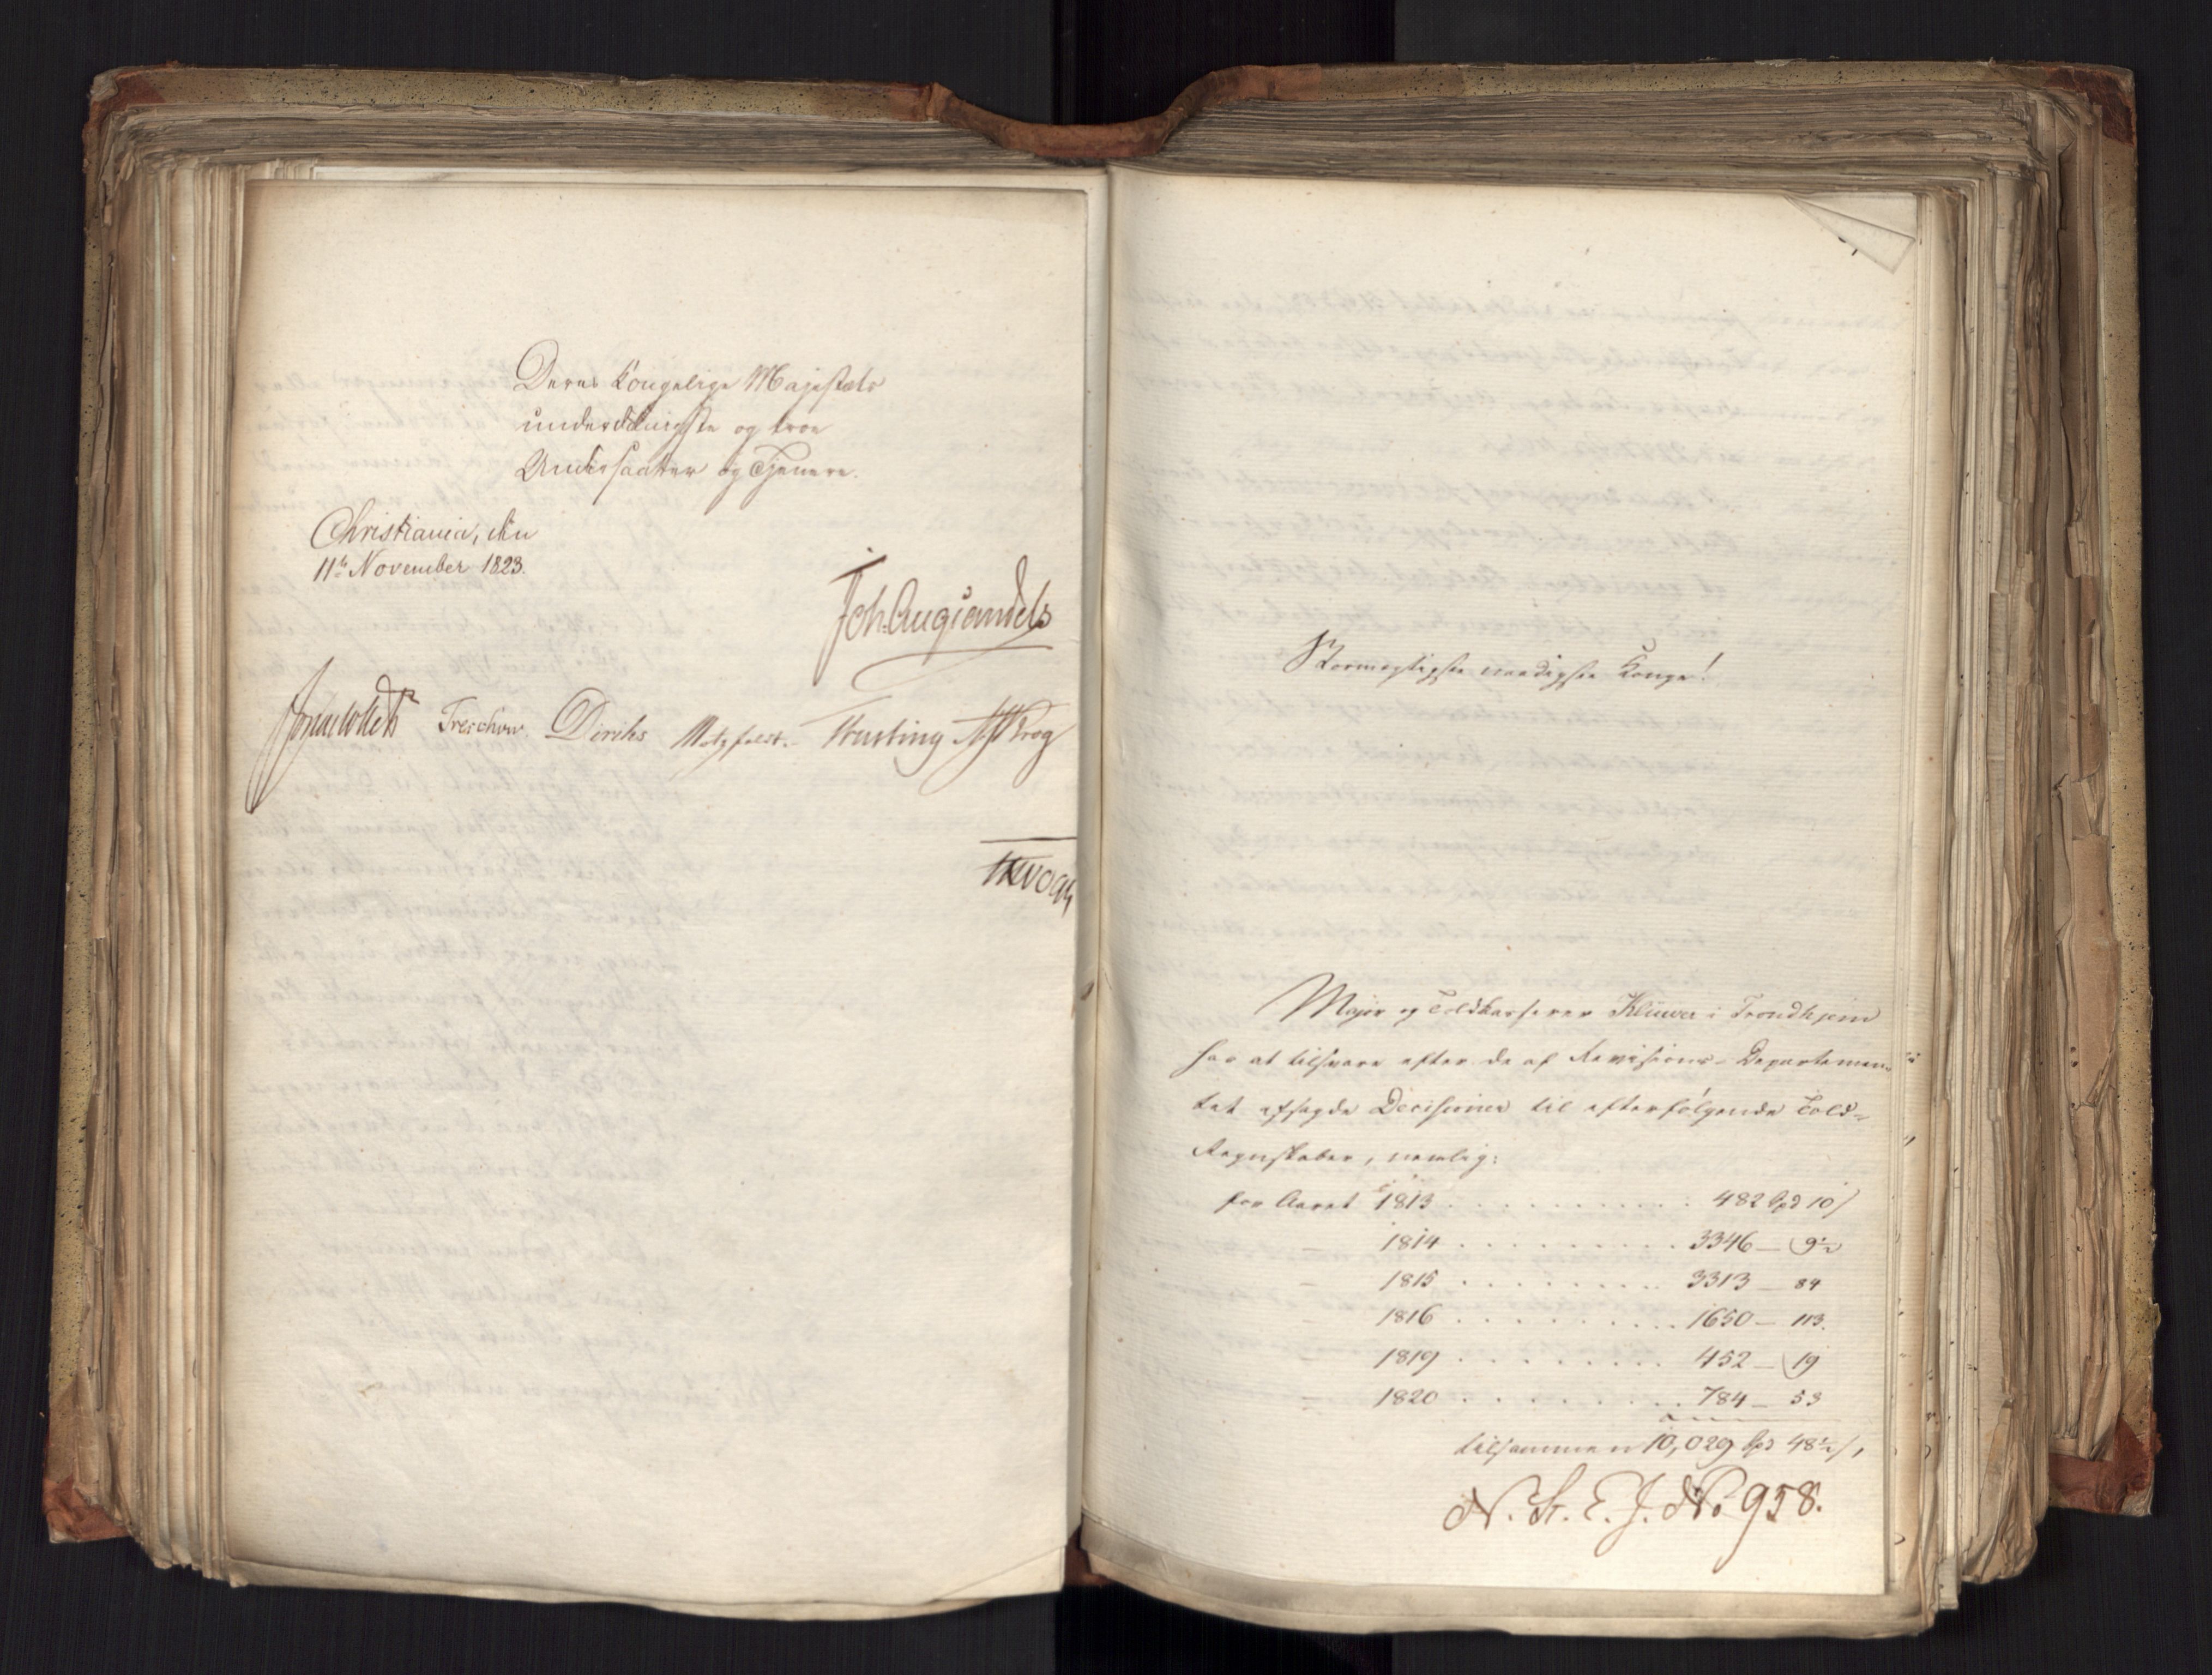 Deres Kongelige Majestæts
underdanigste og troe
Undersaatter og Tjenere.
Christiania, den
11te November 1823.
Joh. Aug. Sandels
Treschow Diriks Motzfeldt Krog
Stormægtigste naadigste Konge!
Major og Toldkasserer Klüwer i Trondhjem
har at tilsvare efter de af Revisions-Departemen-
tet afsagde Decisioner til efterfølgende Told-
Regnskaber, nemlig:
for Aaret 1813 . . . . . . . . . . 482 Spd 10 ß
— 1814 . . . . . . . . . 3346 — 9½
— 1815 . . . . . . . . . 3313 — 84
— 1816 . . . . . . . . . 1650 — 113.
— 1819 . . . . . . . . . 452 — 19
— 1820 . . . . . . . . . 784 — 53
tilsammen 10,029 Spd 48½ ß,
N. St. E. J. No 958.